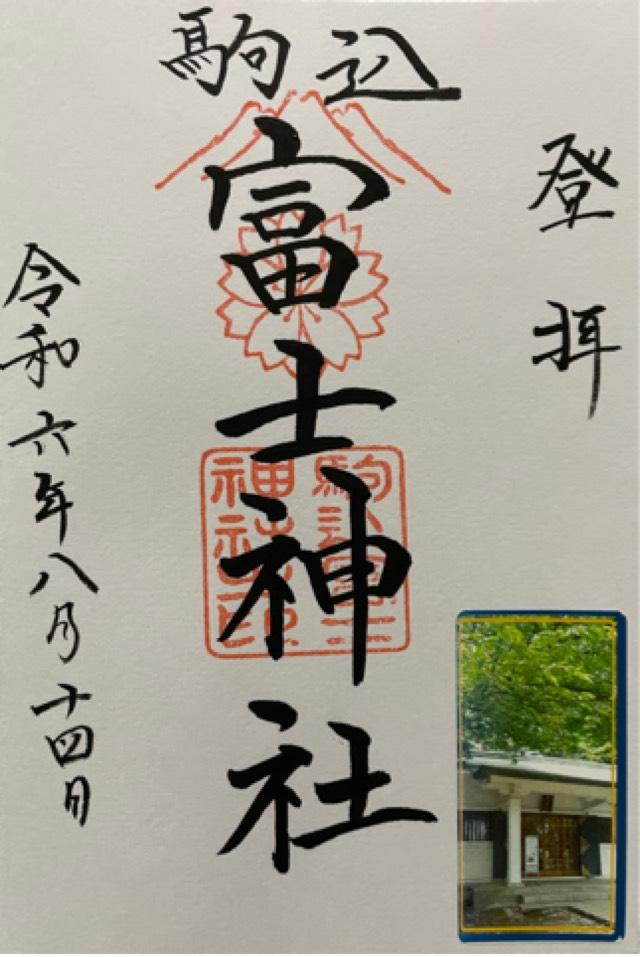 登拝
駒込
富士神社
駒込富士
神社之印
令和六年八月十四日